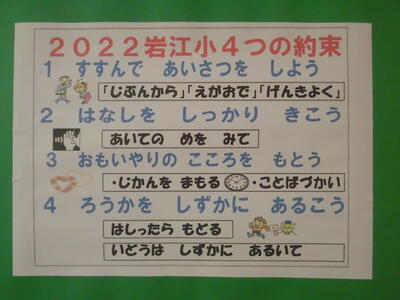 2022岩江小4つの約束
1 すすんで あいさつを しよう
「じぶんから」「えがおで」「げんきよく」
2 はなしを しっかり きこう
あいての めを みて
3 おもいやりの こころを もとう
・じかんを まもる ・ことばづかい
4 ろうかを しずかに あるこう
はしったら もどる
いどうは しずかに あるいて